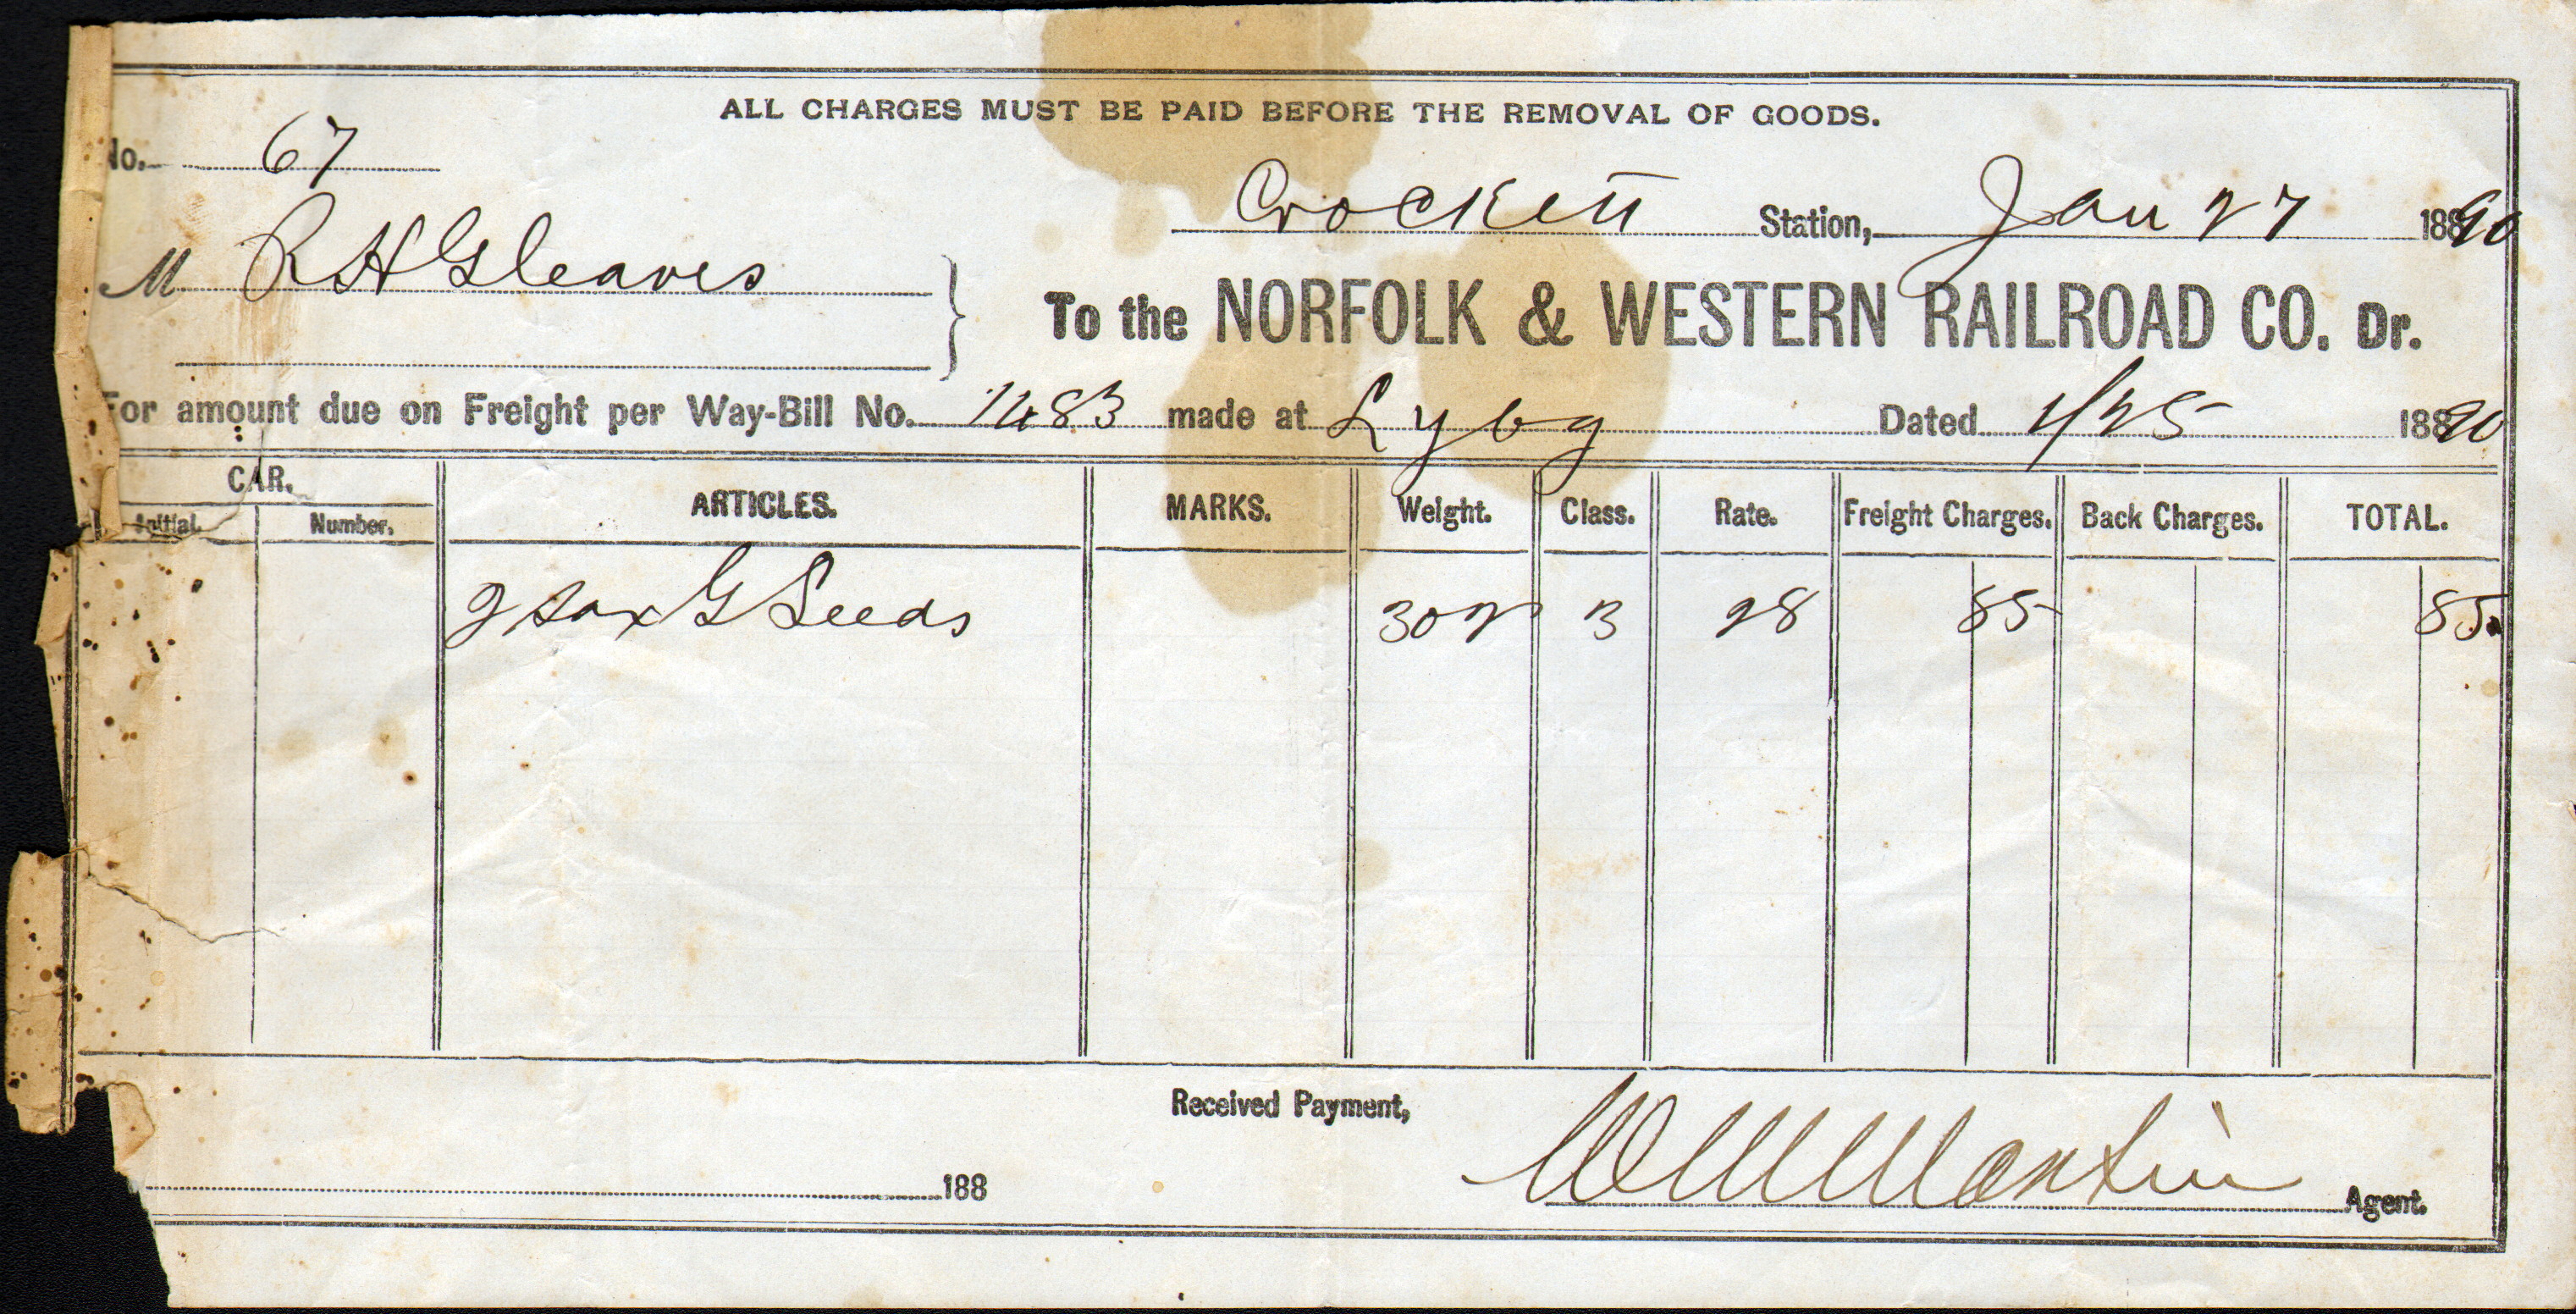 ALL CHARGES MUST BE PAID BEFORE THE REMOVAL OF GOODS.
No. 67
Crockett Station, Jan 27 1890
M R H Gleaves
To the NORFOLK & WESTERN RAILROAD CO. Dr.
For amount due on Freight per Way-Bill No. 1483 made at Lybg Dated 1/25 1890
CAR. ARTICLES. MARKS. Weight. Class. Rate. Freight Charges. Back Charges. TOTAL.
Initial. Number.
2 Sax G Seeds 302 3 28 85 85
Received Payment,
188 Martin Agent.